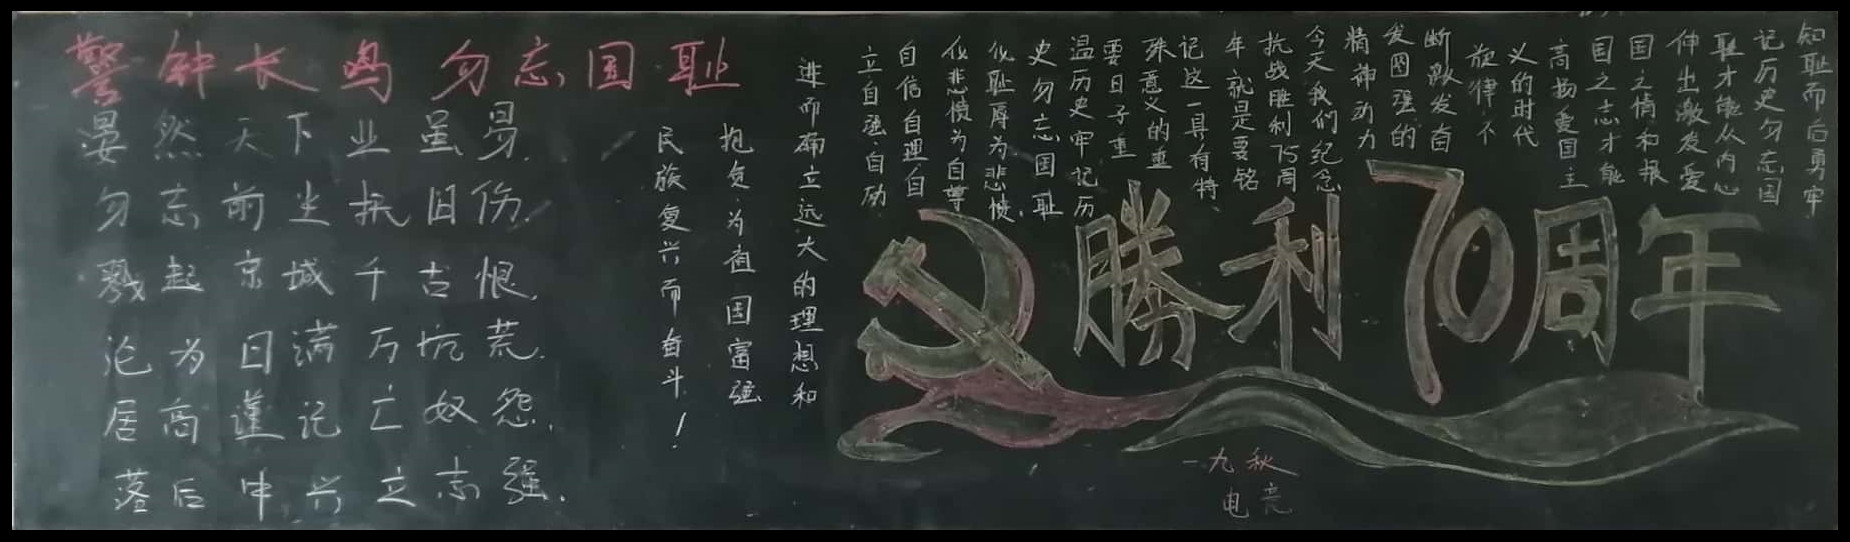 警钟长鸣 勿忘国耻
晏然天下业虽易.
勿忘前尘抚旧伤.
戮起京城千古恨.
沦为日满万坑荒.
居高谨记亡奴怨.
落后中兴立志强.
知耻而后勇牢
记历史勿忘国
耻才能从内心
伸出激发爱
国之情和报
国之志才能
高扬爱国主
义的时代
旋律不
断激发奋
发图强的
精神动力
今天我们纪念
抗战胜利75周
年就是要铭
记这一具有特
殊意义的重
要日子重
温历史牢记历
史勿忘国耻
化耻辱为悲愤.
化悲愤为自尊
自信自理自
立自强自励
进而确立远大的理想和
抱负为祖国富强
民族复兴而奋斗!
勝利70周年
一九秋
电亮